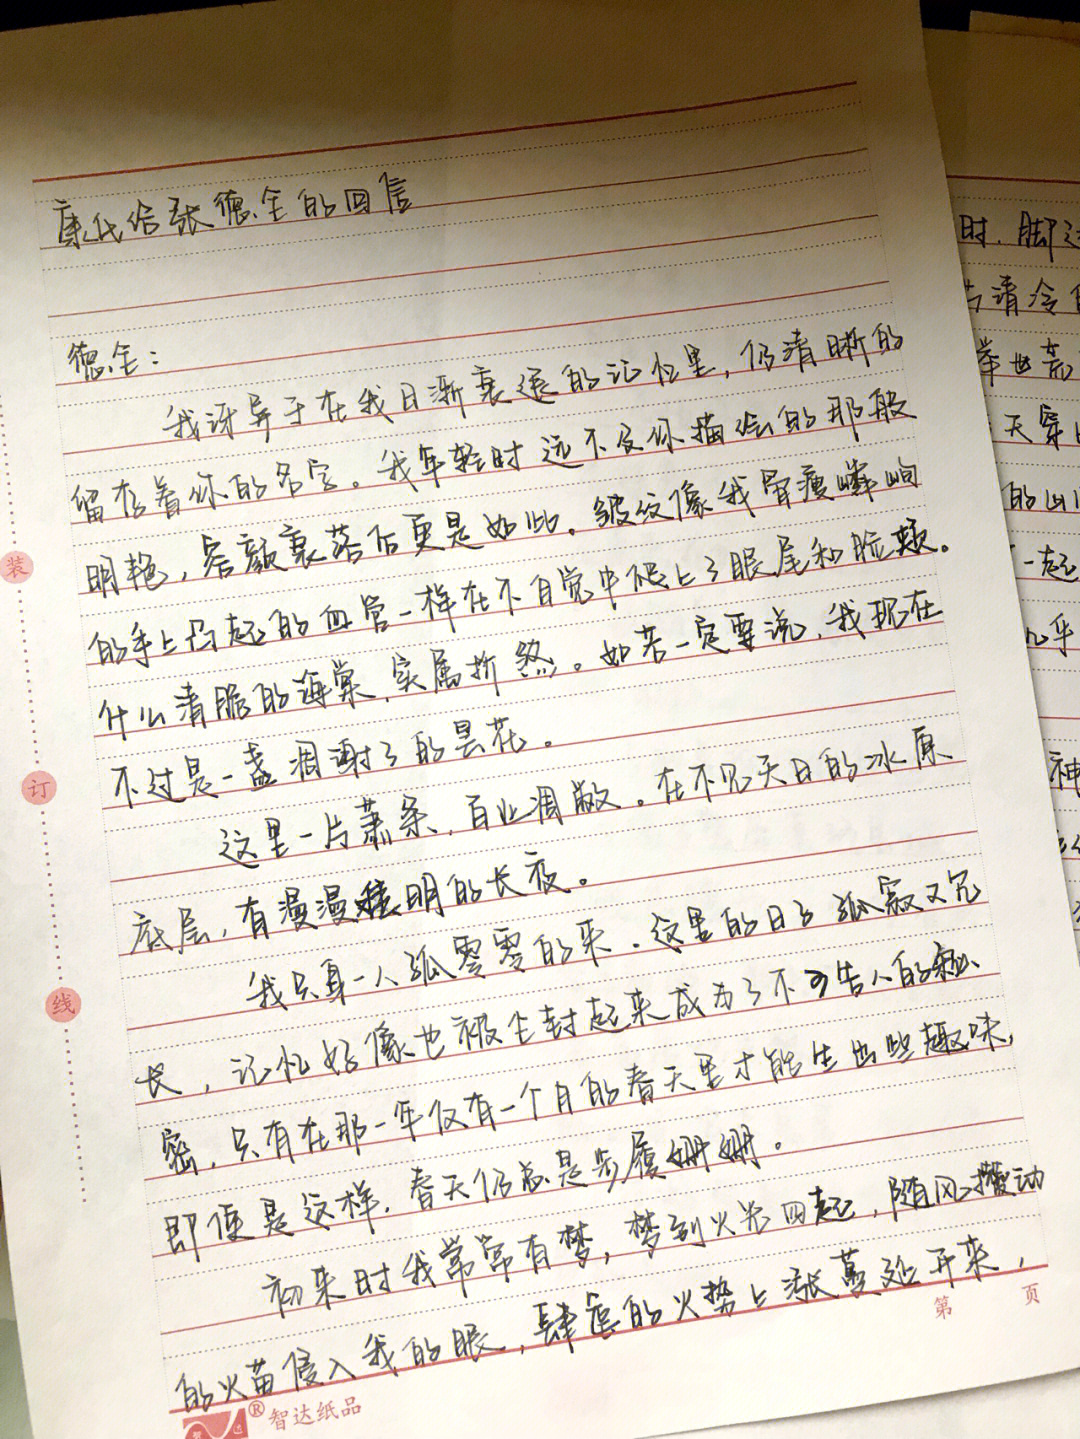 康氏给张德全的回信
德全：
我讶异于在我日渐衰退的记忆里，仍清晰的
留存着你的名字。我年轻时远不及你描绘的那般
明艳，容颜衰落后更是如此。皱纹像我骨瘦嶙峋
的手上凸起的血管一样在不自觉中爬上了眼尾和脸颊。
什么清脆的海棠，实属折煞。如若一定要说，我现在
不过是一盏凋谢了的昙花。
这里一片萧条，百业凋敝。在不见天日的冰原
底层，有漫漫明的长夜。
我只身一人孤零零的来。这里的日子孤寂又冗
长，记忆好像也被尘封起来成为了不可告人的秘
密，只有在那一年仅有一个月的春天里才能生出些趣味，
即便是这样，春天仍总是步履姗姗。
初来时我常常有梦，梦到火光四起，随风攒动
的火苗侵入我的眼，肆虐的火势上涨蔓延开来，
装
订
线
第 页
®智达纸品
时，脚
清冷
举世荒
天穿
的山
一起
几乎
神